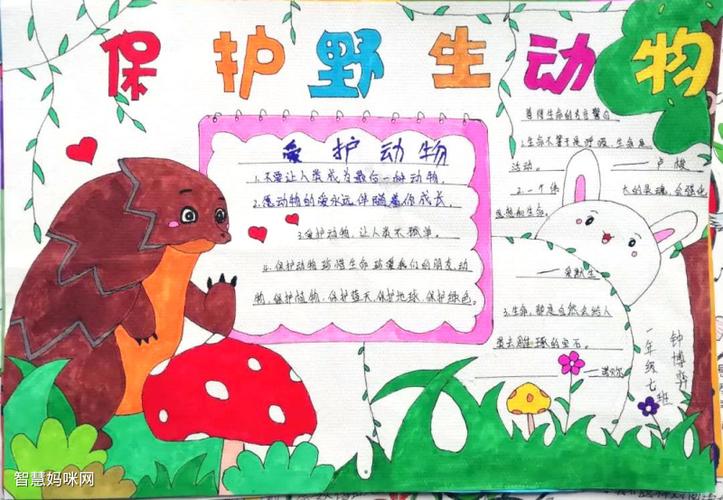 保护野生动物
爱护动物
1.不要让人类成为最后一种动物.
2.愿动物的爱永远伴随着你成长.
3.爱护动物,让人类不孤单.
4.保护动物珍惜生命珍爱我们的朋友,动
物,保护植物,保护蓝天,保护地球,保护绿色.
善待生命的名言警句
1.生命不等于是呼吸,生命是
活动。 ——卢梭
2.一个伟大的灵魂,会强化
思想和生命.
——爱默生
3.生命,那是自然会给人
类去雕琢的宝石。
——诺贝尔
一年级七班
钟博
智慧妈咪网